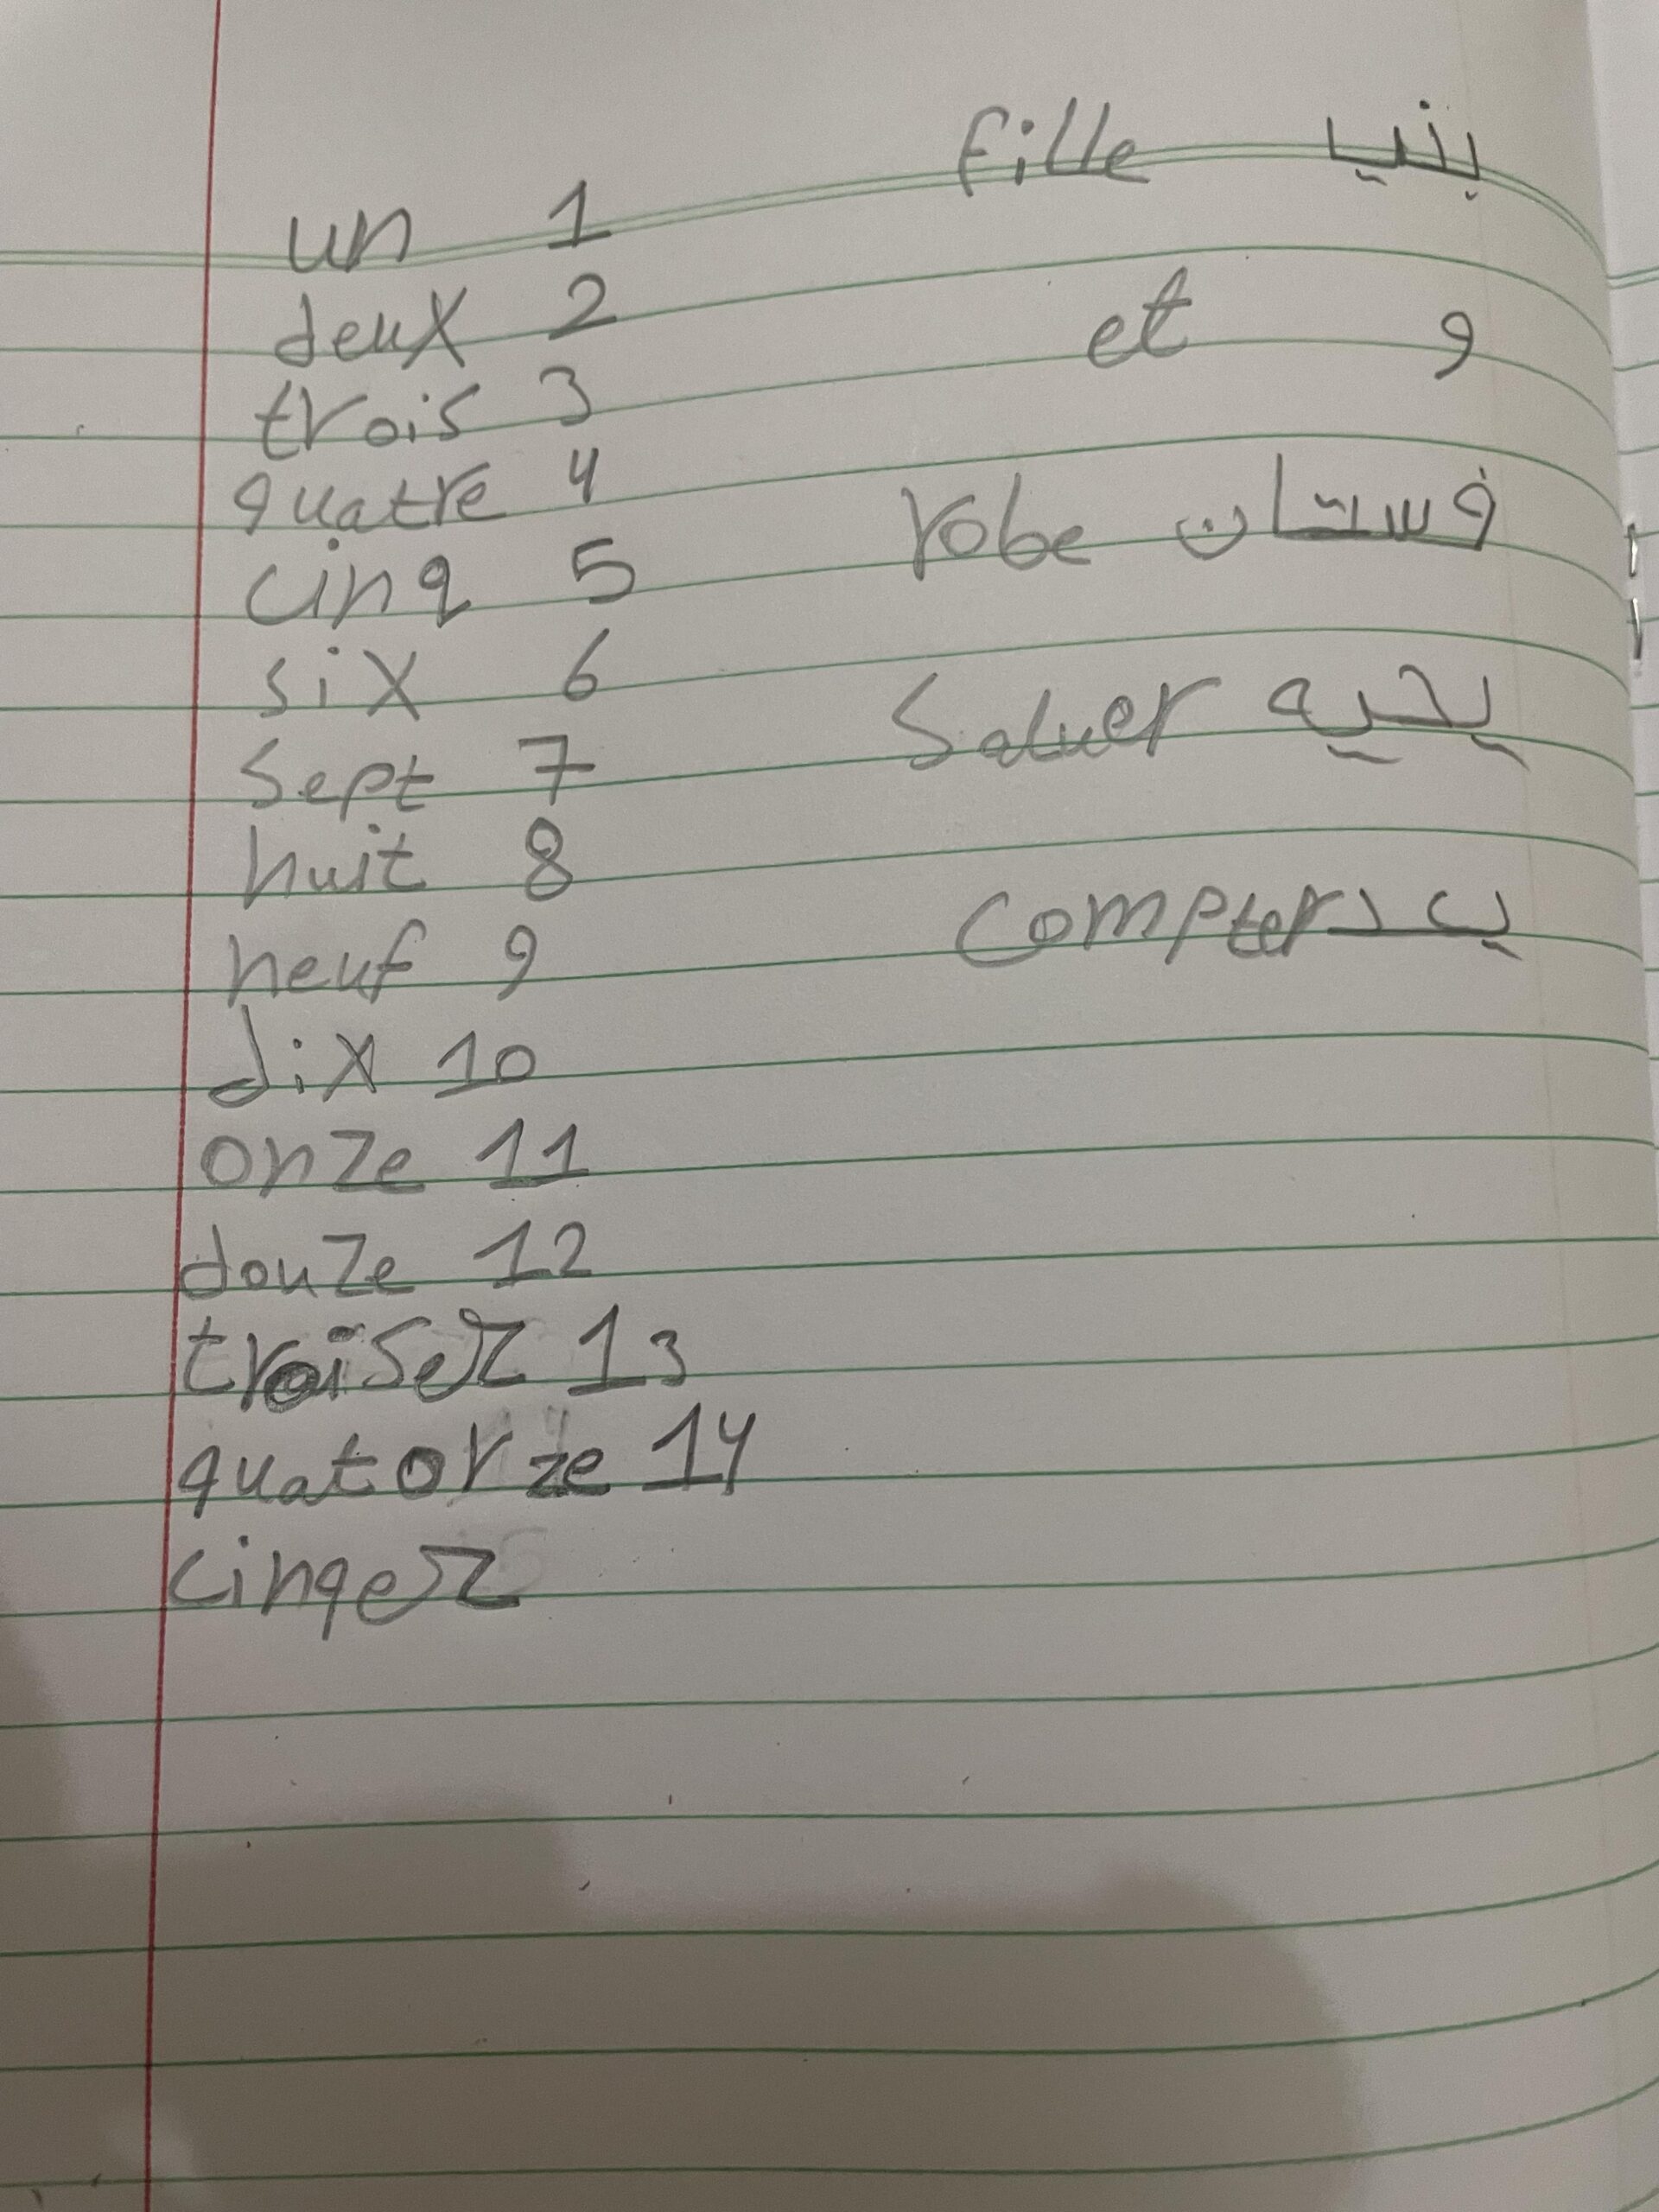 un 1
deux 2
trois 3
quatre 4
cinq 5
six 6
sept 7
huit 8
neuf 9
dix 10
onze 11
douze 12
troisez 13
quatorze 14
cinqez
fille بنيـا
et و
robe فستان
Saluer يحيه
compter يعد